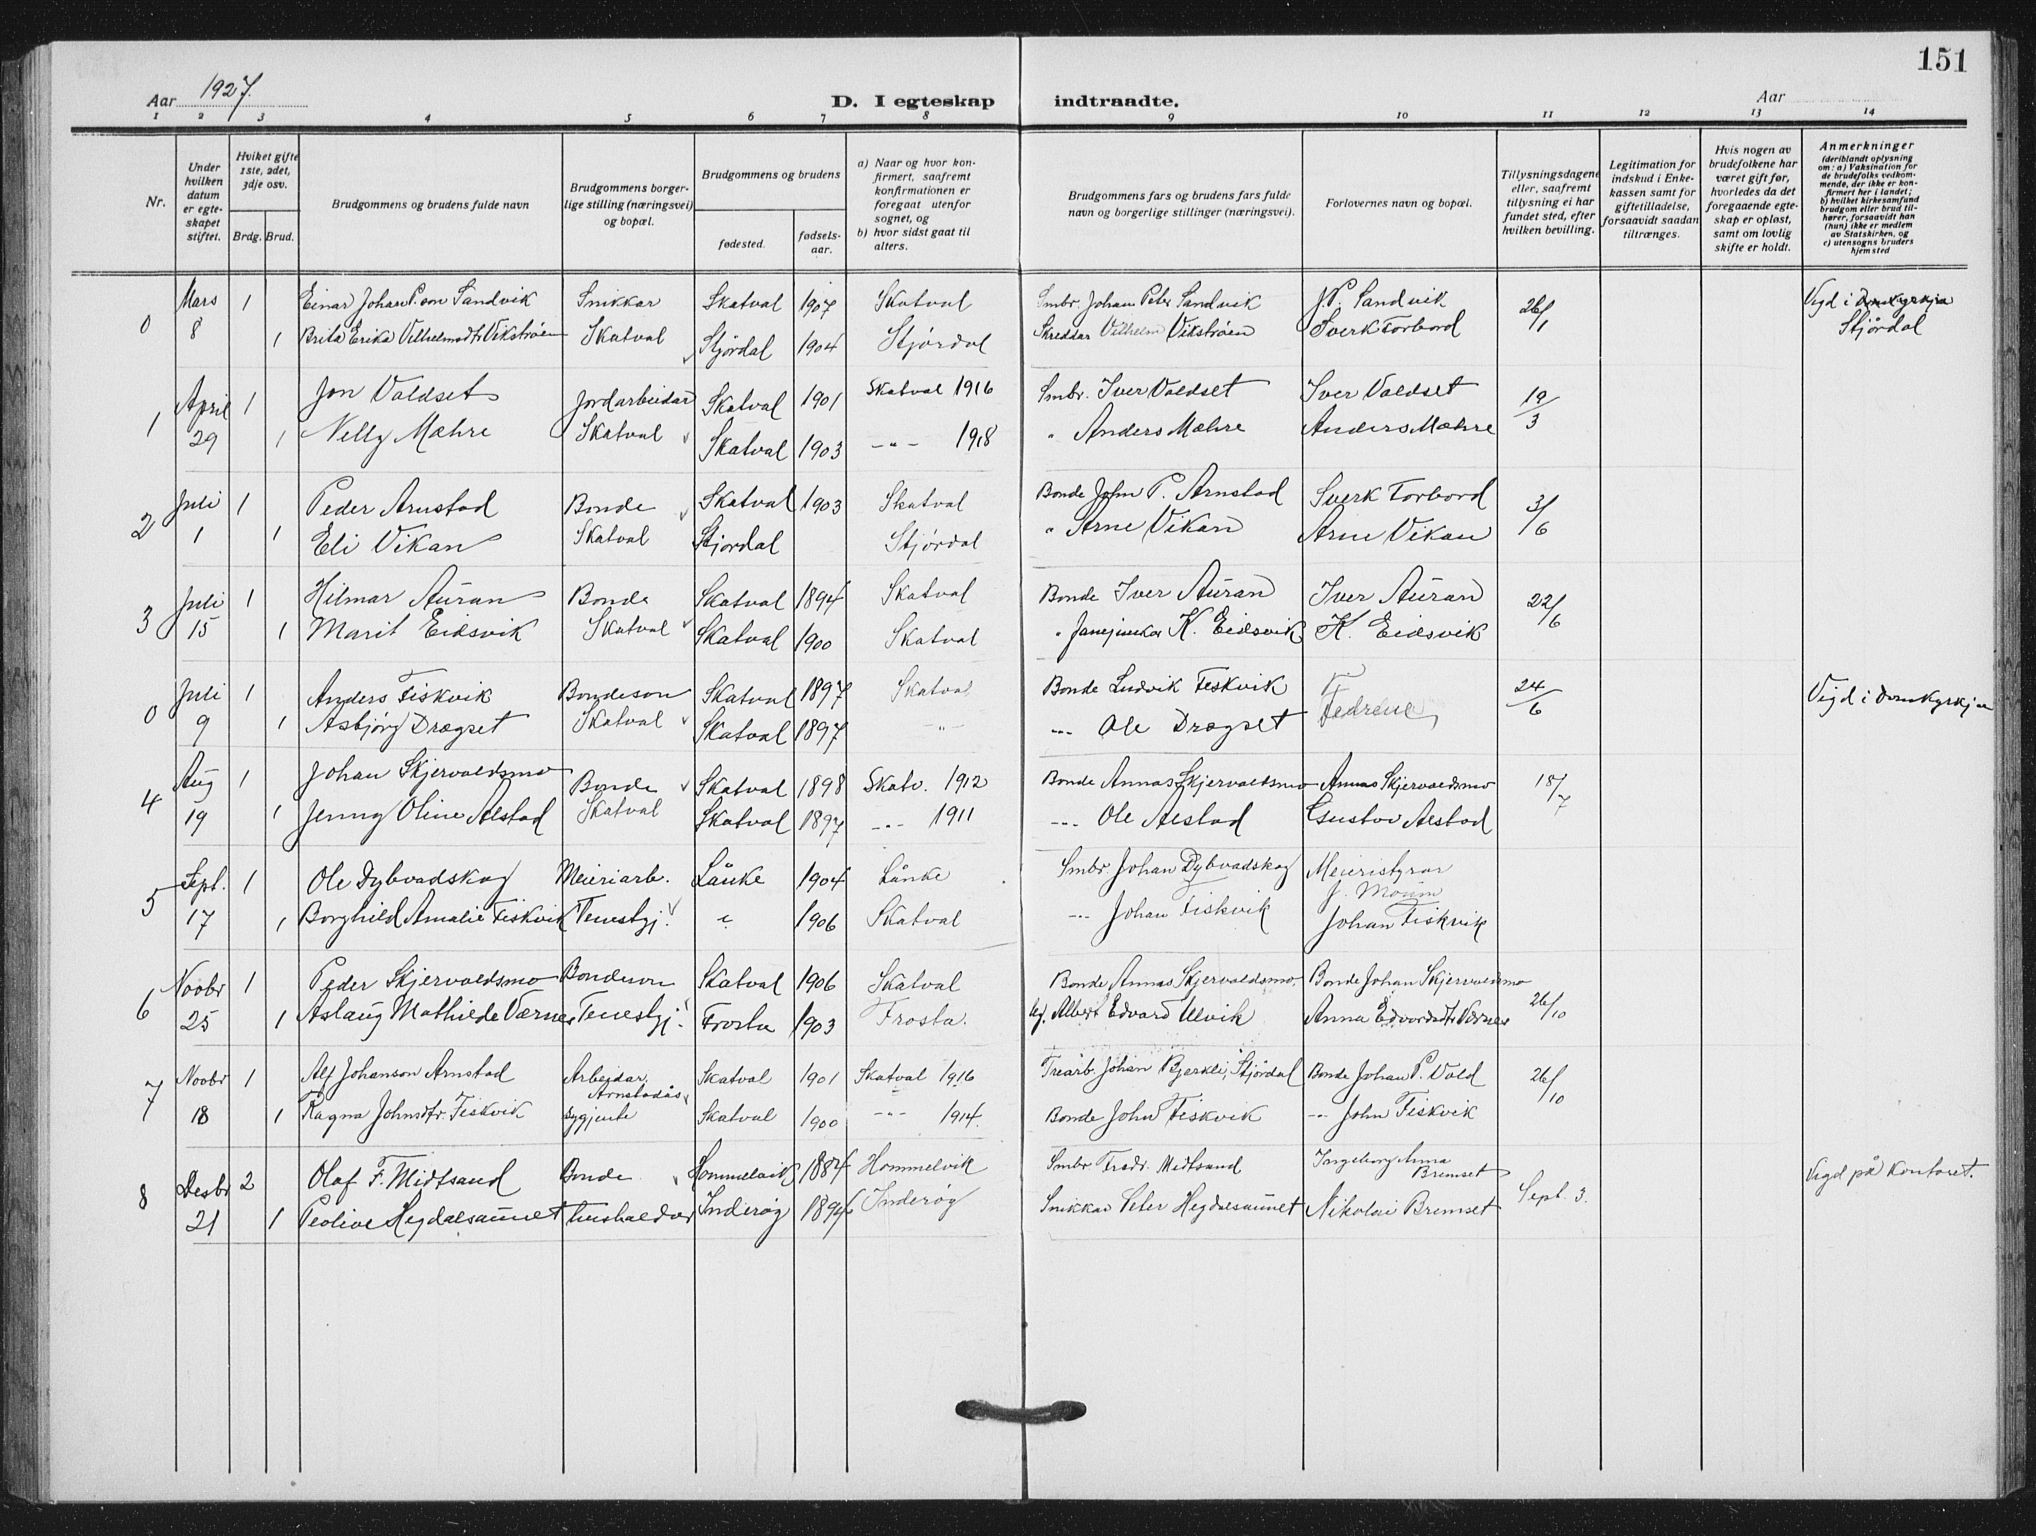 151
Aar 1927.
D. I egteskap indtraadte.
Aar
1 2 3 4 5 6 7 8 9 10 11 12 13 14
Nr.
Under hvilken datum er egteskapet stiftet.
Hviket gifte 1ste, 2det, 3dje osv.
Brdg. Brud.
Brudgommens og brudens fulde navn
Brudgommens borgerlige stilling (næringsvei) og bopæl.
Brudgommens og brudens
fødested.
fødselsaar.
a) Naar og hvor konfirmert, saafremt konfirmationen er foregaat utenfor sognet, og
b) hvor sidst gaat til alters.
Brudgommens fars og brudens fars fulde navn og borgerlige stillinger (næringsvei).
Forlovernes navn og bopæl.
Tillysningsdagene eller, saafremt tillysning ei har fundet sted, efter hvilken bevilling.
Legitimation for indskud i Enkekassen samt for giftetilladelse, forsaavidt saadan tiltrænges.
Hvis nogen av brudefolkene har været gift før, hvorledes da det foregaaende egteskap er opløst, samt om lovlig skifte er holdt.
Anmerkninger
(deriblandt oplysning om: a) Vaksination for de brudefolks vedkommende, der ikke er konfirmert her i landet; b) hvilket kirkesamfund brudgom eller brud tilhører, forsaavidt han (hun) ikke er medlem av Statskirken, og c) utensogns bruders hjemsted
0 Mars 1 Einar Johan P.son Sandvik Snikkar Skatval 1907 Skatval Smbr. Johan Peter Sandvik J.P. Sandvik 26/1 Vigd i Domkyrkja
8 1 Brita Erika Vilhelmsdtr Vikstrøen Skatval Stjørdal 1904 Stjørdal Skreddar Vilhelm Vikstrøen Sverk Forbord Stjørdal
1 April 1 Jon Valdset Jordarbeidar Skatval 1901 Skatval 1916 Smbr. Iver Valdset Iver Valdset 19/3
29 1 Nelly Mæhre Skatval Skatval 1903 -"- 1918 " Anders Mæhre Anders Mæhre
2 Juli 1 Peder Arnstad Bonde Skatval 1903 Skatval Bonde John P. Arnstad Sverk Forbord 3/6
1 1 Eli Vikan Skatval Stjørdal Stjørdal " Arne Vikan Arne Vikan
3 Juli 1 Hilmar Auran Bonde Skatval 1894 Skatval Bonde Iver Auran Iver Auran 22/6
15 1 Marit Eidsvik Skatval Skatval 1900 Skatval " K. Eidsvik K. Eidsvik
0 Juli 1 Anders Fiskvik Bondeson Skatval 1897 Skatval Bonde Ludvik Feskvik Fedrene 24/6 Vigd i Domkyrkja
9 1 Asbjørg Drogset Skatval Skatval 1897 -"- -"- Ole Drogset
4 Aug 1 Johan Skjervoldsmo Bonde Skatval 1898 Skatv. 1912 Bonde Annas Skjervoldsmo Annas Skjervoldsmo 18/7
19 1 Jenny Oline Alstad Skatval Skatval 1897 -"- 1911 -"- Ole Alstad Gustav Alstad
5 Sept. 1 Ole Dybvadskog Meieriarb. Lånke 1904 Lånke Smbr Johan Dybvadskog Meieristyrar
J. Moum
17 1 Borghild Amalie Fiskvik Tenestgj. " 1906 Skatval -"- Johan Fiskvik Johan Fiskvik
6 Novbr 1 Peder Skjervoldsmo Bondeson Skatval 1906 Skatval Bonde Annas Skjervoldsmo. Bonde Johan Skjervoldsmo 26/10
25 1 Aslaug Mathilde Værnes Tenestgj. Frosta 1903 Frosta. Albert Edvard Ulvik Anna Edvardsdtr Værnes
7 Novbr 1 Alf Johanson Arnstad Arbeidar, Arnstadås Skatval 1901 Skatval 1916 Trearb. Johan Bjerkli, Stjørdal Bonde Johan P. Vold 26/10
18 1 Ragna Johnsdtr. Fiskvik Sygjente Skatval 1900 -"- 1914. Bonde John Fiskvik -"- John Fiskvik
8 Desbr 2 Olaf F. Midtsand Bonde Hommelvik 1884 Hommelvik Smbr Fredr. Midtsand Ingeborg Anna Bremset Sept. 3. Vigd på kontoret.
21 1 Peolive Hegdalsaunet hushalder Inderøy 1894 Inderøy Snikkar Peter Hegdalsaunet Nikolai Bremset